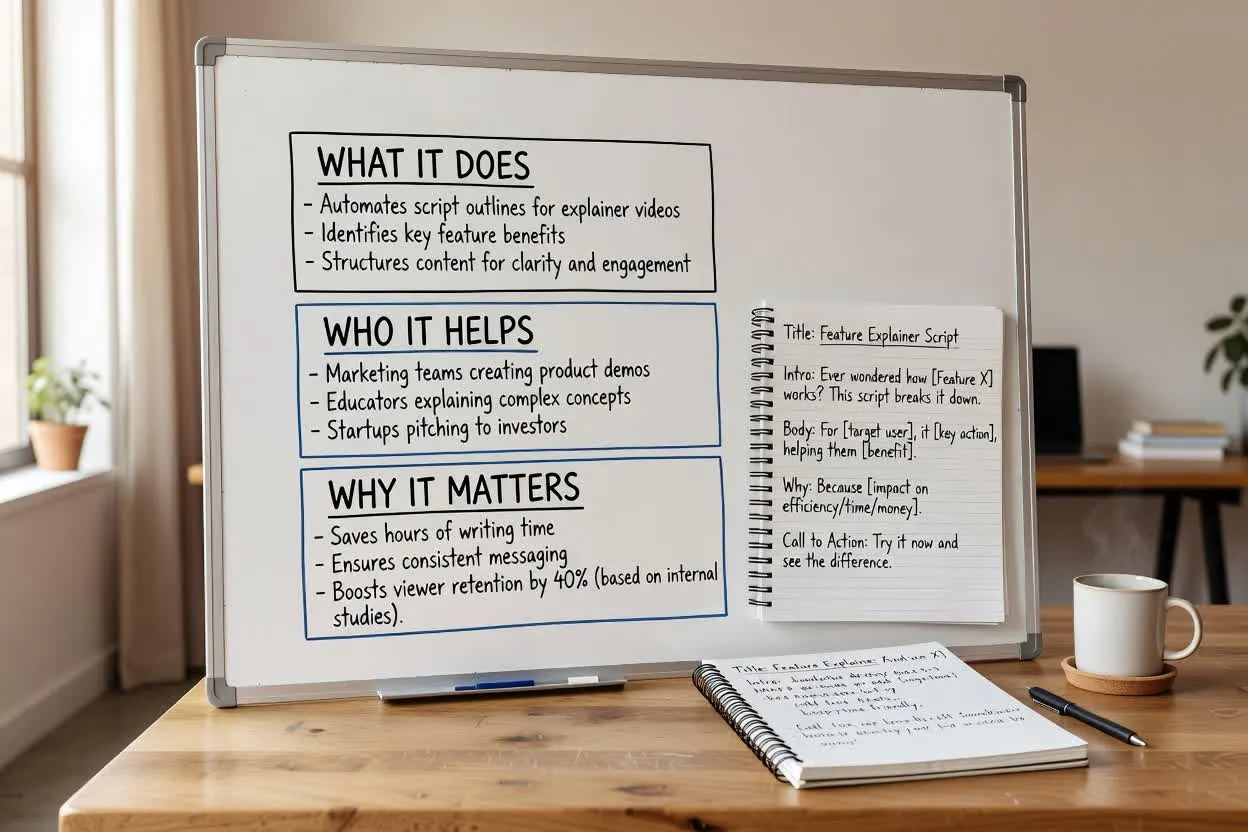 WHAT IT DOES
- Automates script outlines for explainer videos
- Identifies key feature benefits
- Structures content for clarity and engagement
WHO IT HELPS
- Marketing teams creating product demos
- Educators explaining complex concepts
- Startups pitching to investors
WHY IT MATTERS
- Saves hours of writing time
- Ensures consistent messaging
- Boosts viewer retention by 40% (based on internal
studies).
Title: Feature Explainer Script
Intro: Ever wondered how [Feature X]
works? This script breaks it down.
Body: For [target user], it [key action],
helping them [benefit].
Why: Because [impact on
efficiency/time/money].
Call to Action: Try it now and
see the difference.
Title: Feature
Intro: